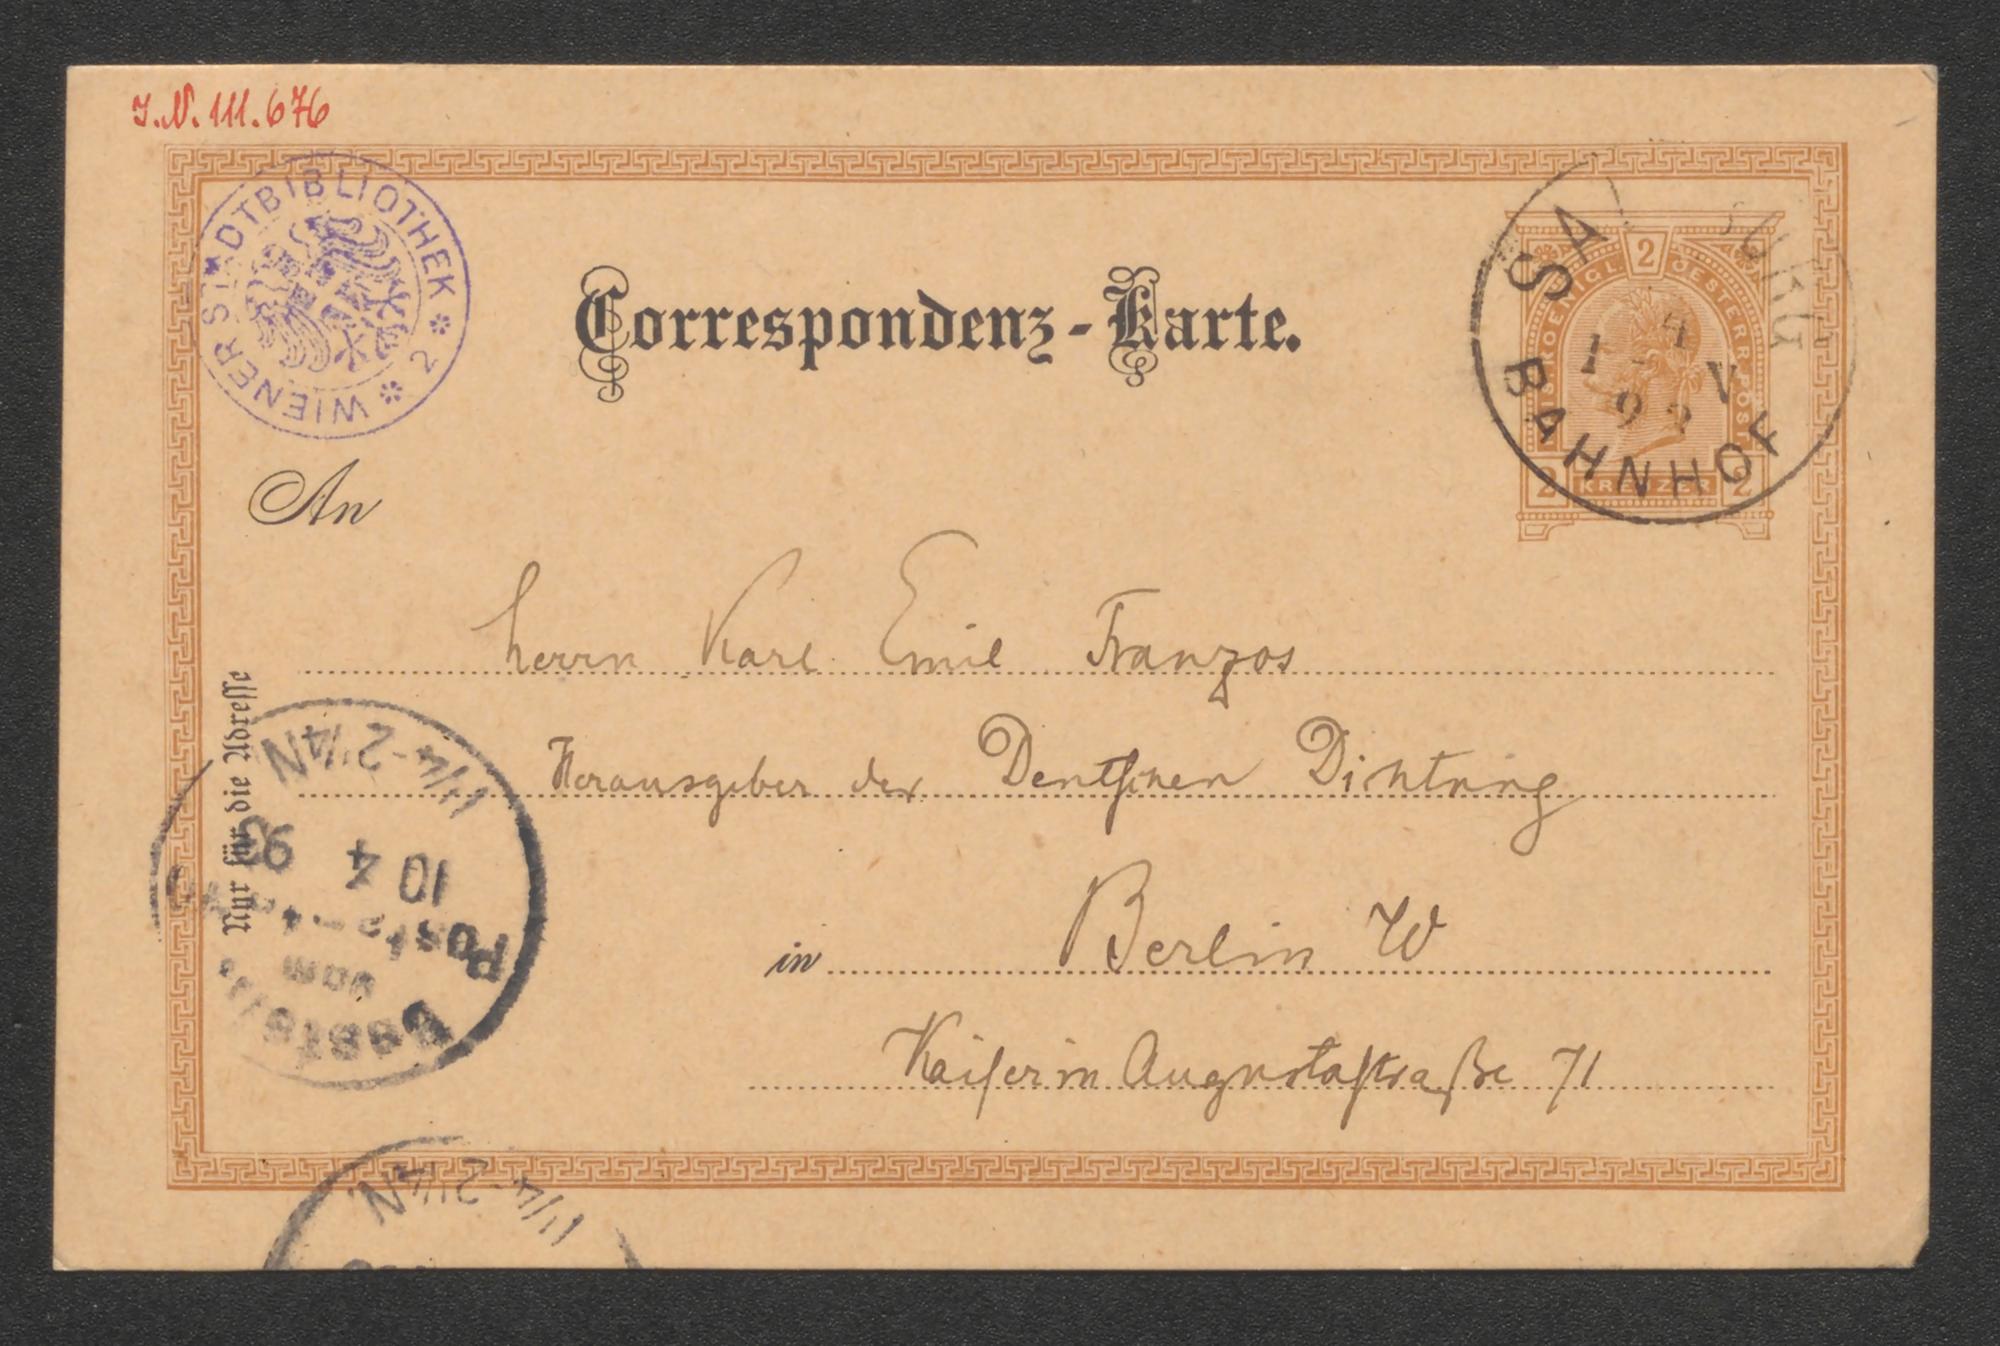 J.N. 111.676
WIENER STADTBIBLIOTHEK * 2 *
Correspondenz-Karte.
2
KROENIGL. OESTERR. POST
2 KREUZER 2
BAHNHOF
An
Herrn Karl Emil Franzos
Herausgeber der Deutschen Dichtung
in Berlin W
Kaiserin Augustastraße 71
Nur für die Adresse
Bestellt
vom
Postamte
10 4 93
1 1/4-2 1/4 N
1 1/4-2 1/4 N